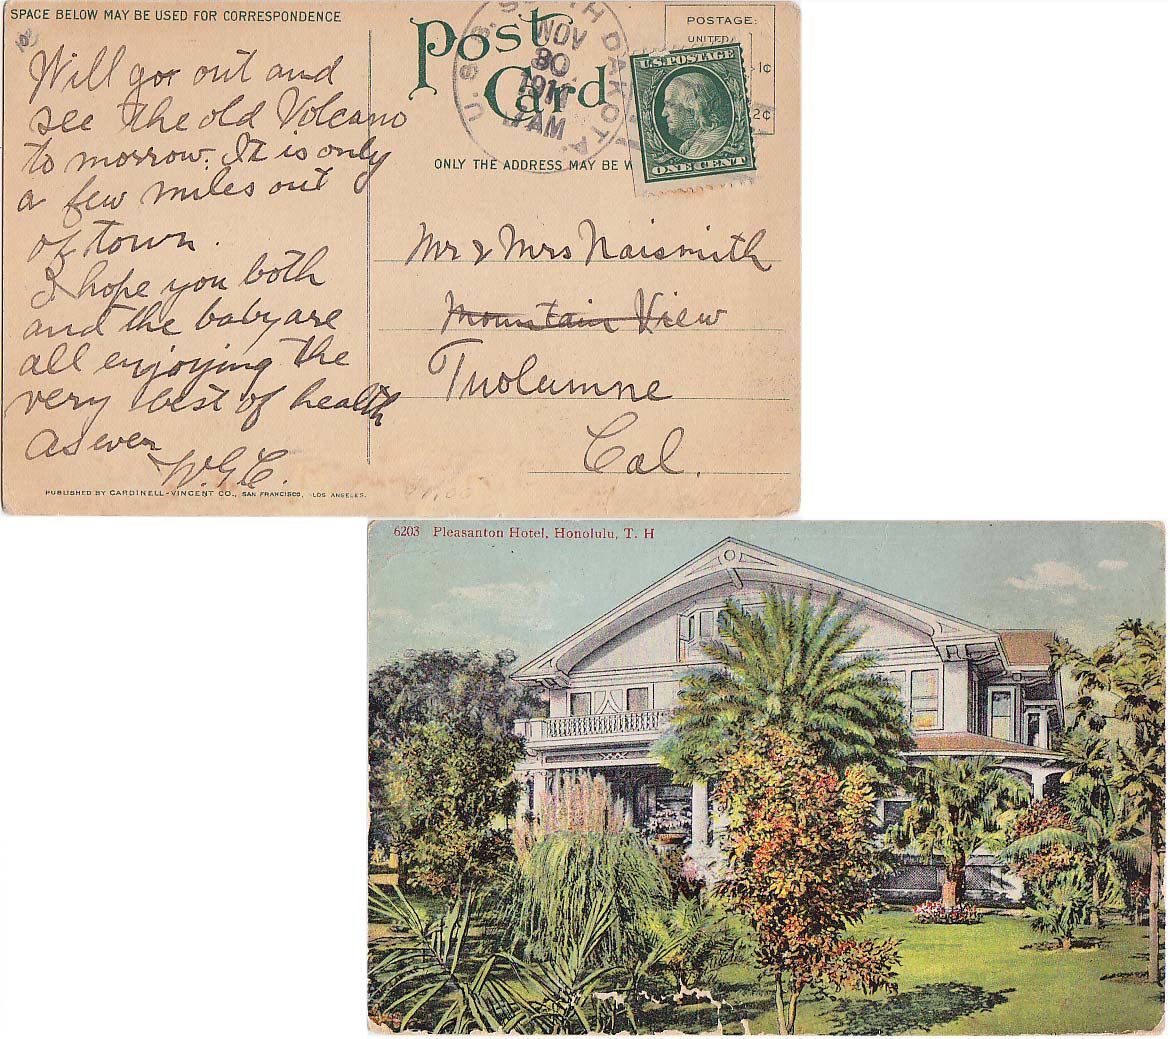 SPACE BELOW MAY BE USED FOR CORRESPONDENCE
Will go out and
see the old Volcano
to morrow. It is only
a few miles out
of town.
I hope you both
and the baby are
all enjoying the
very best of health
as ever
W.G.C.
PUBLISHED BY CARDINELL-VINCENT CO., SAN FRANCISCO, LOS ANGELES.
Post
Card
U.S.S. SOUTH DAKOTA
NOV
30
AM
POSTAGE:
UNITED
1¢
2¢
U.S. POSTAGE
ONE CENT
ONLY THE ADDRESS MAY BE W
Mr & Mrs Naismith
Mountain View
Tuolumne
Cal.
6203 Pleasanton Hotel, Honolulu, T. H